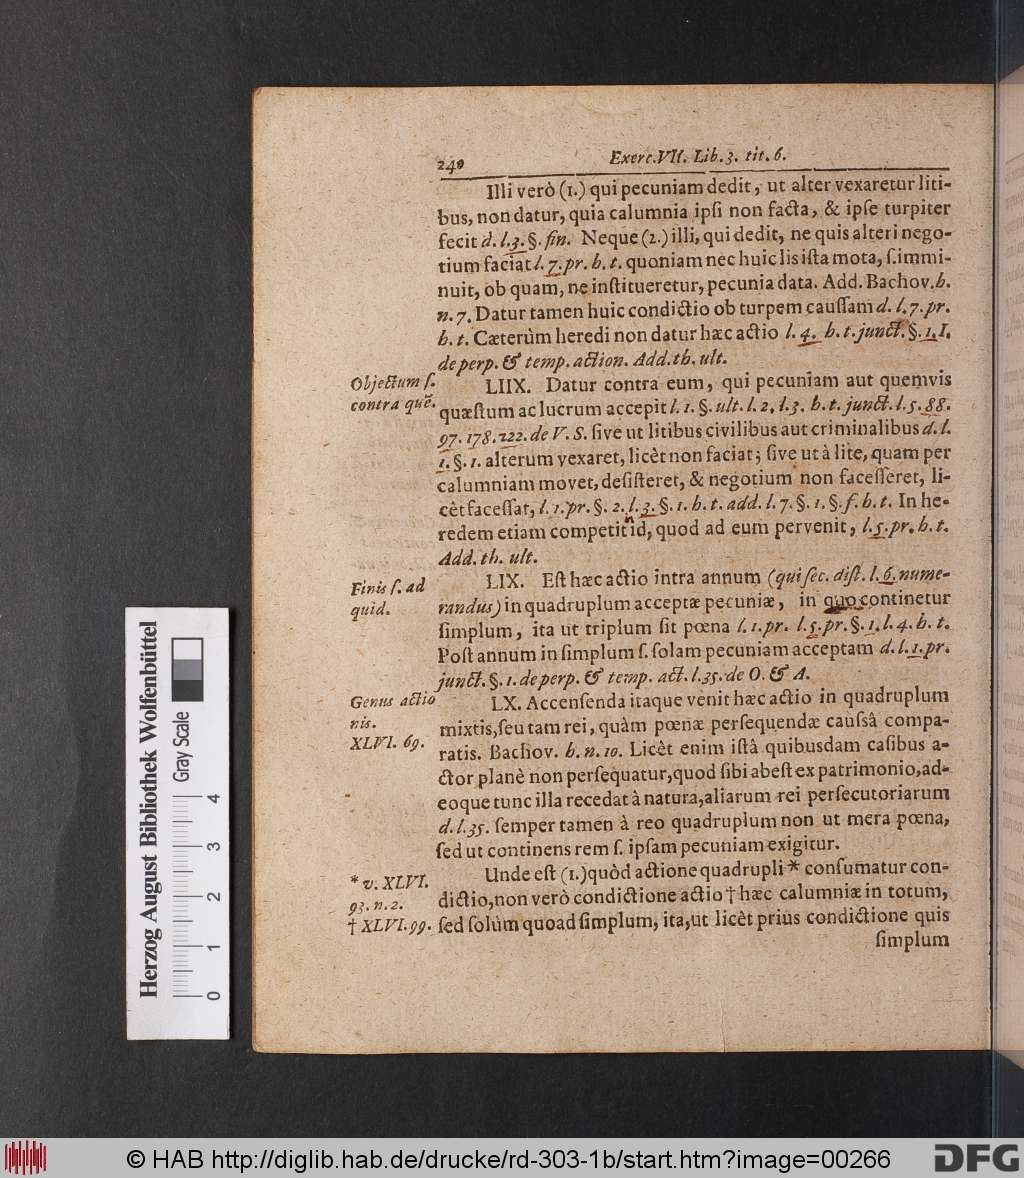 240 Exerc. VII. Lib. 3. tit. 6.
Illi verò (1.) qui pecuniam dedit, ut alter vexaretur liti-
bus, non datur, quia calumnia ipſi non facta, & ipſe turpiter
fecit d. l. 3. §. fin. Neque (2.) illi, qui dedit, ne quis alteri nego-
tium faciat l. 7. pr. h. t. quoniam nec huic lis iſta mota, ſ. immi-
nuit, ob quam, ne inſtitueretur, pecunia data. Add. Bachov. h.
n. 7. Datur tamen huic condictio ob turpem cauſſam d. l. 7. pr.
h. t. Cæterùm heredi non datur hæc actio l. 4. h. t. junct. §. 1. I.
de perp. & temp. action. Add. th. ult.
Objectum ſ.
contra quẽ.
LIIX. Datur contra eum, qui pecuniam aut quemvis
quæſtum ac lucrum accepit l. 1. §. ult. l. 2. l. 3. h. t. junct. l. 5. 88.
97. 178. 222. de V. S. ſive ut litibus civilibus aut criminalibus d. l.
1. §. 1. alterum vexaret, licèt non faciat; ſive ut à lite, quam per
calumniam movet, deſiſteret, & negotium non faceſſeret, li-
cèt faceſſat, l. 1. pr. §. 2. l. 3. §. 1. h. t. add. l. 7. §. 1. §. f. h. t. In he-
redem etiam competit in id, quod ad eum pervenit, l. 5. pr. h. t.
Add. th. ult.
Finis ſ. ad
quid.
LIX. Eſt hæc actio intra annum (qui ſec. diſt. l. 6. nume-
randus) in quadruplum acceptæ pecuniæ, in quo continetur
ſimplum, ita ut triplum ſit pœna l. 1. pr. l. 5. pr. §. 1. l. 4. h. t.
Poſt annum in ſimplum ſ. ſolam pecuniam acceptam d. l. 1. pr.
junct. §. 1. de perp. & temp. act. l. 35. de O. & A.
Genus actio
nis.
XLVI. 69.
LX. Accenſenda itaque venit hæc actio in quadruplum
mixtis, ſeu tam rei, quàm pœnæ perſequendæ cauſsâ compa-
ratis. Bachov. h. n. 10. Licèt enim iſtâ quibusdam caſibus a-
ctor planè non perſequatur, quod ſibi abeſt ex patrimonio, ad-
eoque tunc illa recedat à natura, aliarum rei perſecutoriarum
d. l. 35. ſemper tamen à reo quadruplum non ut mera pœna,
ſed ut continens rem ſ. ipſam pecuniam exigitur.
* v. XLVI.
93. n. 2.
† XLVI. 99.
Unde eſt (1.) quòd actione quadrupli * conſumatur con-
dictio, non verò condictione actio † hæc calumniæ in totum,
ſed ſolùm quoad ſimplum, ita, ut licèt priùs condictione quis
ſimplum
Herzog August Bibliothek Wolfenbüttel
Gray Scale
0 1 2 3 4
© HAB http://diglib.hab.de/drucke/rd-303-1b/start.htm?image=00266
DFG